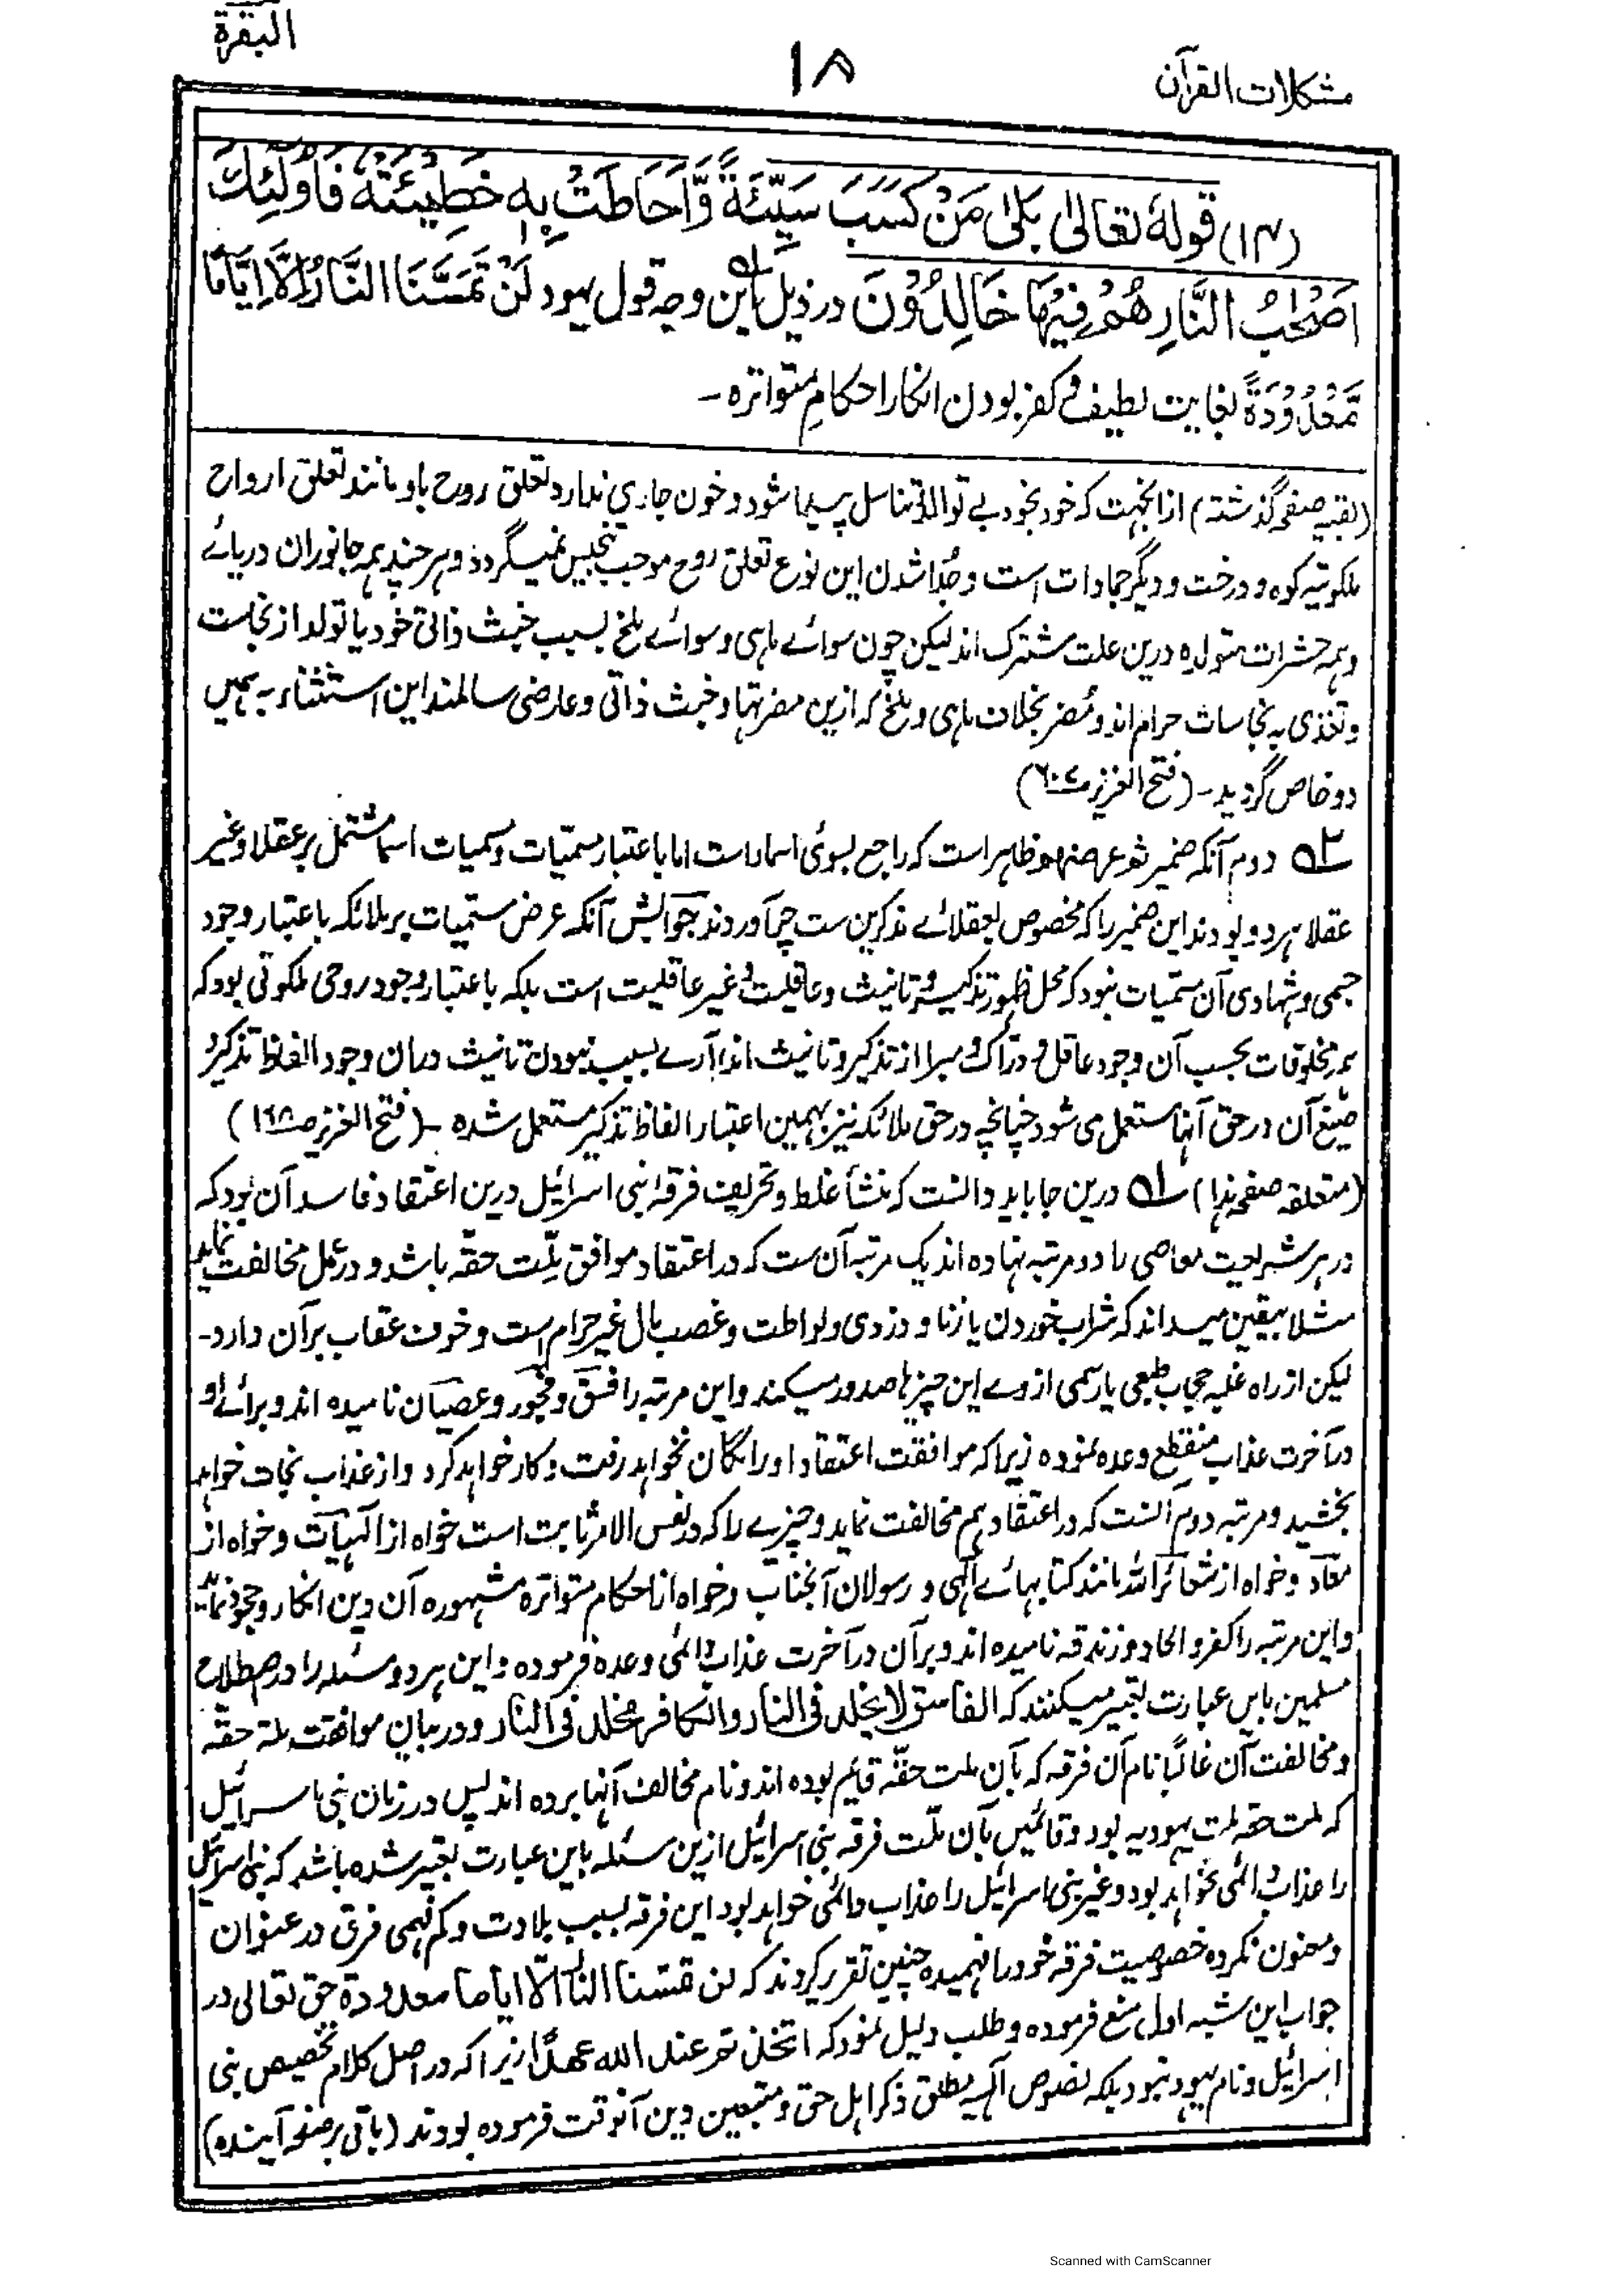 مشکلات القرآن
۱۸
البقرة
(۱۴) قولهٗ تعالیٰ بَلیٰ مَنْ کَسَبَ سَیِّئَةً وَّاَحَاطَتْ بِهٖ خَطِیْٓئَتُهٗ فَاُولٰٓئِكَ
اَصْحٰبُ النَّارِ هُمْ فِیْهَا خَالِدُوْنَ در ذیل این وجہ قول یہود لَنْ تَمَسَّنَا النَّارُ اِلَّا اَیَّامًا
مَّعْدُوْدَةً بغایت لطیف و کفر بودن انکار احکامِ متواترہ ـ
(بقیہ صفحہ گذشتہ) ازانجہت کہ خود بخود بے توالد و تناسل پیدا شود و خون جاری ندارد تعلق روح باو مانند تعلق ارواح
ملکوتیہ کوہ و درخت و دیگر جمادات است و جُدا شدن این نوع تعلق روح موجب تنجیس نمیگردد و ہر چند ہمہ جانوران دریائے
و ہمہ حشرات متولدہ درین علت مشترک اند لیکن چون سوائے ماہی و سوائے ملخ بسبب خبث ذاتی خود یا تولد از نجاست
و تغذی بہ نجاسات حرام اند و مُضر بخلاف ماہی و ملخ کہ ازین مضرتہا و خبث ذاتی و عارضی سالمند این استثناء بہ ہمیں
دو خاص گردید ـ (فتح العزیز
۲ دوم آنکہ ضمیر ثم عرضهم ظاہر است کہ راجع بسوئ اسماء است اما باعتبار مسمّیات و مسمیات اسما مشتمل بر عقلا و غیر
عقلا ہر دو بودند این ضمیر را کہ مخصوص بعقلائے مذکرین ست چرا آوردند جوابش آنکہ عرض مسمّیات بر ملائکہ باعتبار وجود
جسمی و شہادی آن مسمّیات نبود کہ محل ظہور تذکیر و تانیث و عاقلیت و غیر عاقلیت است بلکہ باعتبار وجود روحی ملکوتی بود کہ
ہمہ مخلوقات بحسب آن وجود عاقل و درّاک و مبرا از تذکیر و تانیث اند آرے بسبب نبودن تانیث دران وجود الفاظ تذکیر و
صیغ آن در حق آنہا مستعمل می شود چنانچہ در حق ملائکہ نیز بہمین اعتبار الفاظ تذکیر مستعمل شدہ ـ (فتح العزیز صـ ۱۶۸)
(متعلقہ صفحہ ہذا) ۱ درین جا باید دانست کہ منشأ غلط و تحریف فرقۂ بنی اسرائیل درین اعتقاد فاسد آن بود کہ
در ہر شریعت معاصی را دو مرتبہ نہادہ اند یک مرتبہ آن ست کہ در اعتقاد موافق ملّت حقّہ باشد و در عمل مخالفت نماید
مثلا بیقین میداند کہ شراب خوردن یا زنا و دزدی و لواطت و غصب مال غیر حرام است و خوف عقاب بر آن دارد ـ
لیکن از راہ غلبہ حجاب طبعی یا رسمی از وے این چیزہا صدور میکند و این مرتبہ را فسق و فجور و عصیان نامیدہ اند و برائے او
در آخرت عذاب منقطع وعدہ نمودہ زیرا کہ موافقت اعتقاد او رائگان نخواہد رفت و کار خواہد کرد و از عذاب نجات خواہد
بخشید و مرتبہ دوم آنست کہ در اعتقاد ہم مخالفت نماید و چیزے را کہ در نفس الامر ثابت است خواہ از الٰہیات و خواہ از
معاد و خواہ از شعائر اللہ مانند کتابہائے الٰہی و رسولان آنجناب و خواہ از احکام متواترہ مشہورہ آن دین انکار و جحود نماید
و این مرتبہ را کفر و الحاد و زندقہ نامیدہ اند و بر آن در آخرت عذاب دائمی وعدہ فرمودہ و این ہر دو مسئلہ را در اصطلاح
مسلمین باین عبارت تعبیر میکنند کہ الفاسق لا یخلد فی النار والکافر مخلد فی النار و در بیان موافقت ملۃ حقّہ
و مخالفت آن غالبًا نام آن فرقہ کہ بآن ملت حقّہ قائم بودہ اند و نام مخالف آنہا بردہ اند پس در زمان بنی اسرائیل
کہ ملت حقہ ملت یہودیہ بود و قائمیں بآن ملّت فرقہ بنی اسرائیل ازین مسئلہ باین عبارت تعبیر شدہ باشد کہ بنی اسرائیل
را عذاب دائمی نخواہد بود و غیر بنی اسرائیل را عذاب دائمی خواہد بود این فرقہ بسبب بلادت و کم فہمی فرق در عنوان
و معنون نکردہ خصوصیت فرقہ خود را فہمیدہ چنین تقریر کردند کہ لن تمسنا النار الّا ایاما معدودة حق تعالی در
جواب این شبہ اول منع فرمودہ و طلب دلیل نمود کہ اتخذتم عند الله عهدًا زیرا کہ در اصل کلام تخصیص بنی
اسرائیل و نام یہود نبود بلکہ نصوص الٰہیہ مطلق ذکر اہل حق و متبعین دین آنوقت فرمودہ بودند (باقی بر صفحہ آیندہ)
Scanned with CamScanner